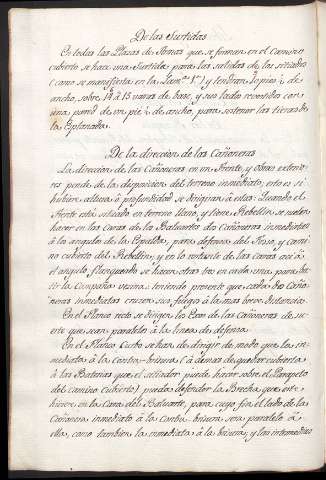 De las Surtidas
En todas las Plazas de Armas que se forman en el Camino
cubierto se hace una Surtida para las salidas de los sitiados
(como se manifiesta en la Lam.ª 1.ª) y tendran 10 pies de
ancho, sobre 14 à 15 varas de largo, y sus lados revestidos con
una pared de un pie ½ de ancho, para sostener las tierras de
la Esplanada.
De la direccion de las Cañoneras
La direccion de las Cañoneras en un Frente, y obras exterio-
res pende de la disposicion del terreno inmediato, esto es si
hubiere altura ò profundidad se dirigiran à ellas: Quando el
Frente està situado en terreno llano, y tiene Rebellin se suelen
hacer en las Caras de los Baluartes dos Cañoneras inmediatas
à los angulos de la Espalda, para defensa del Foso, y cami-
no cubierto del Rebellin, y en lo restante de las caras àcia
el angulo flanqueado se hacen otras tres en cada una, para ba-
tir la Campaña vecina teniendo presente que estas Caño-
neras inmediatas crucen sus fuegos à la mas breve distancia.
En el Flanco recto se dirigen los Ejes de las Cañoneras de su-
erte que sean paralelos à la linea de defensa.
En el Flanco Curbo se han de dirigir de modo que la in-
mediata à la Contra-brisura (à demas de quedar cubierta
à las Baterias que el sitiador puede hacer sobre el Parapeto
del camino cubierto) pueda defender la Brecha que este
hiciere en la Cara del Baluarte, para cuyo fin el lado de la
Cañonera inmediato à la contra brisura sera paralelo à
ella, como tambien la inmediata à la brisura, y las intermedias